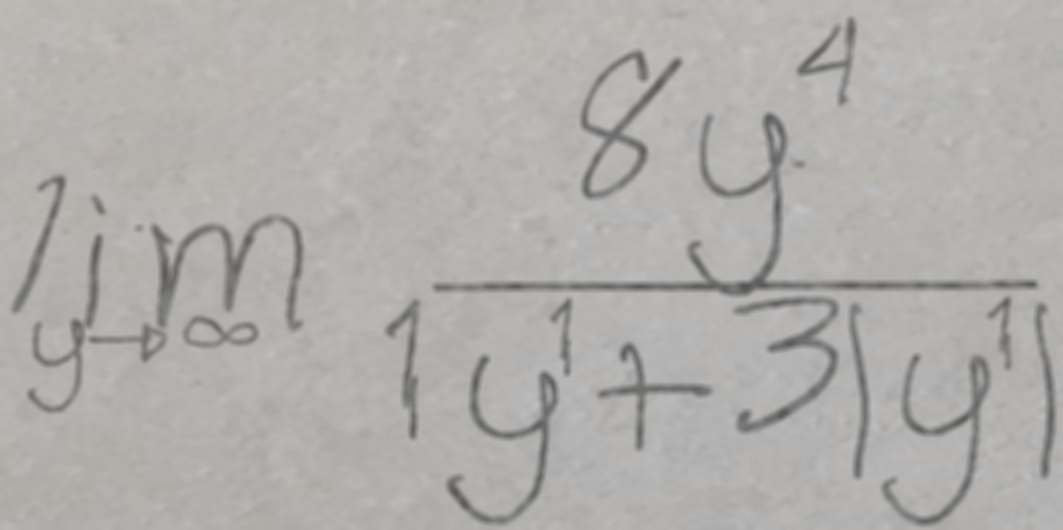 \lim_{y \to \infty} \frac{8y^4}{1y^1+3|y^1|}